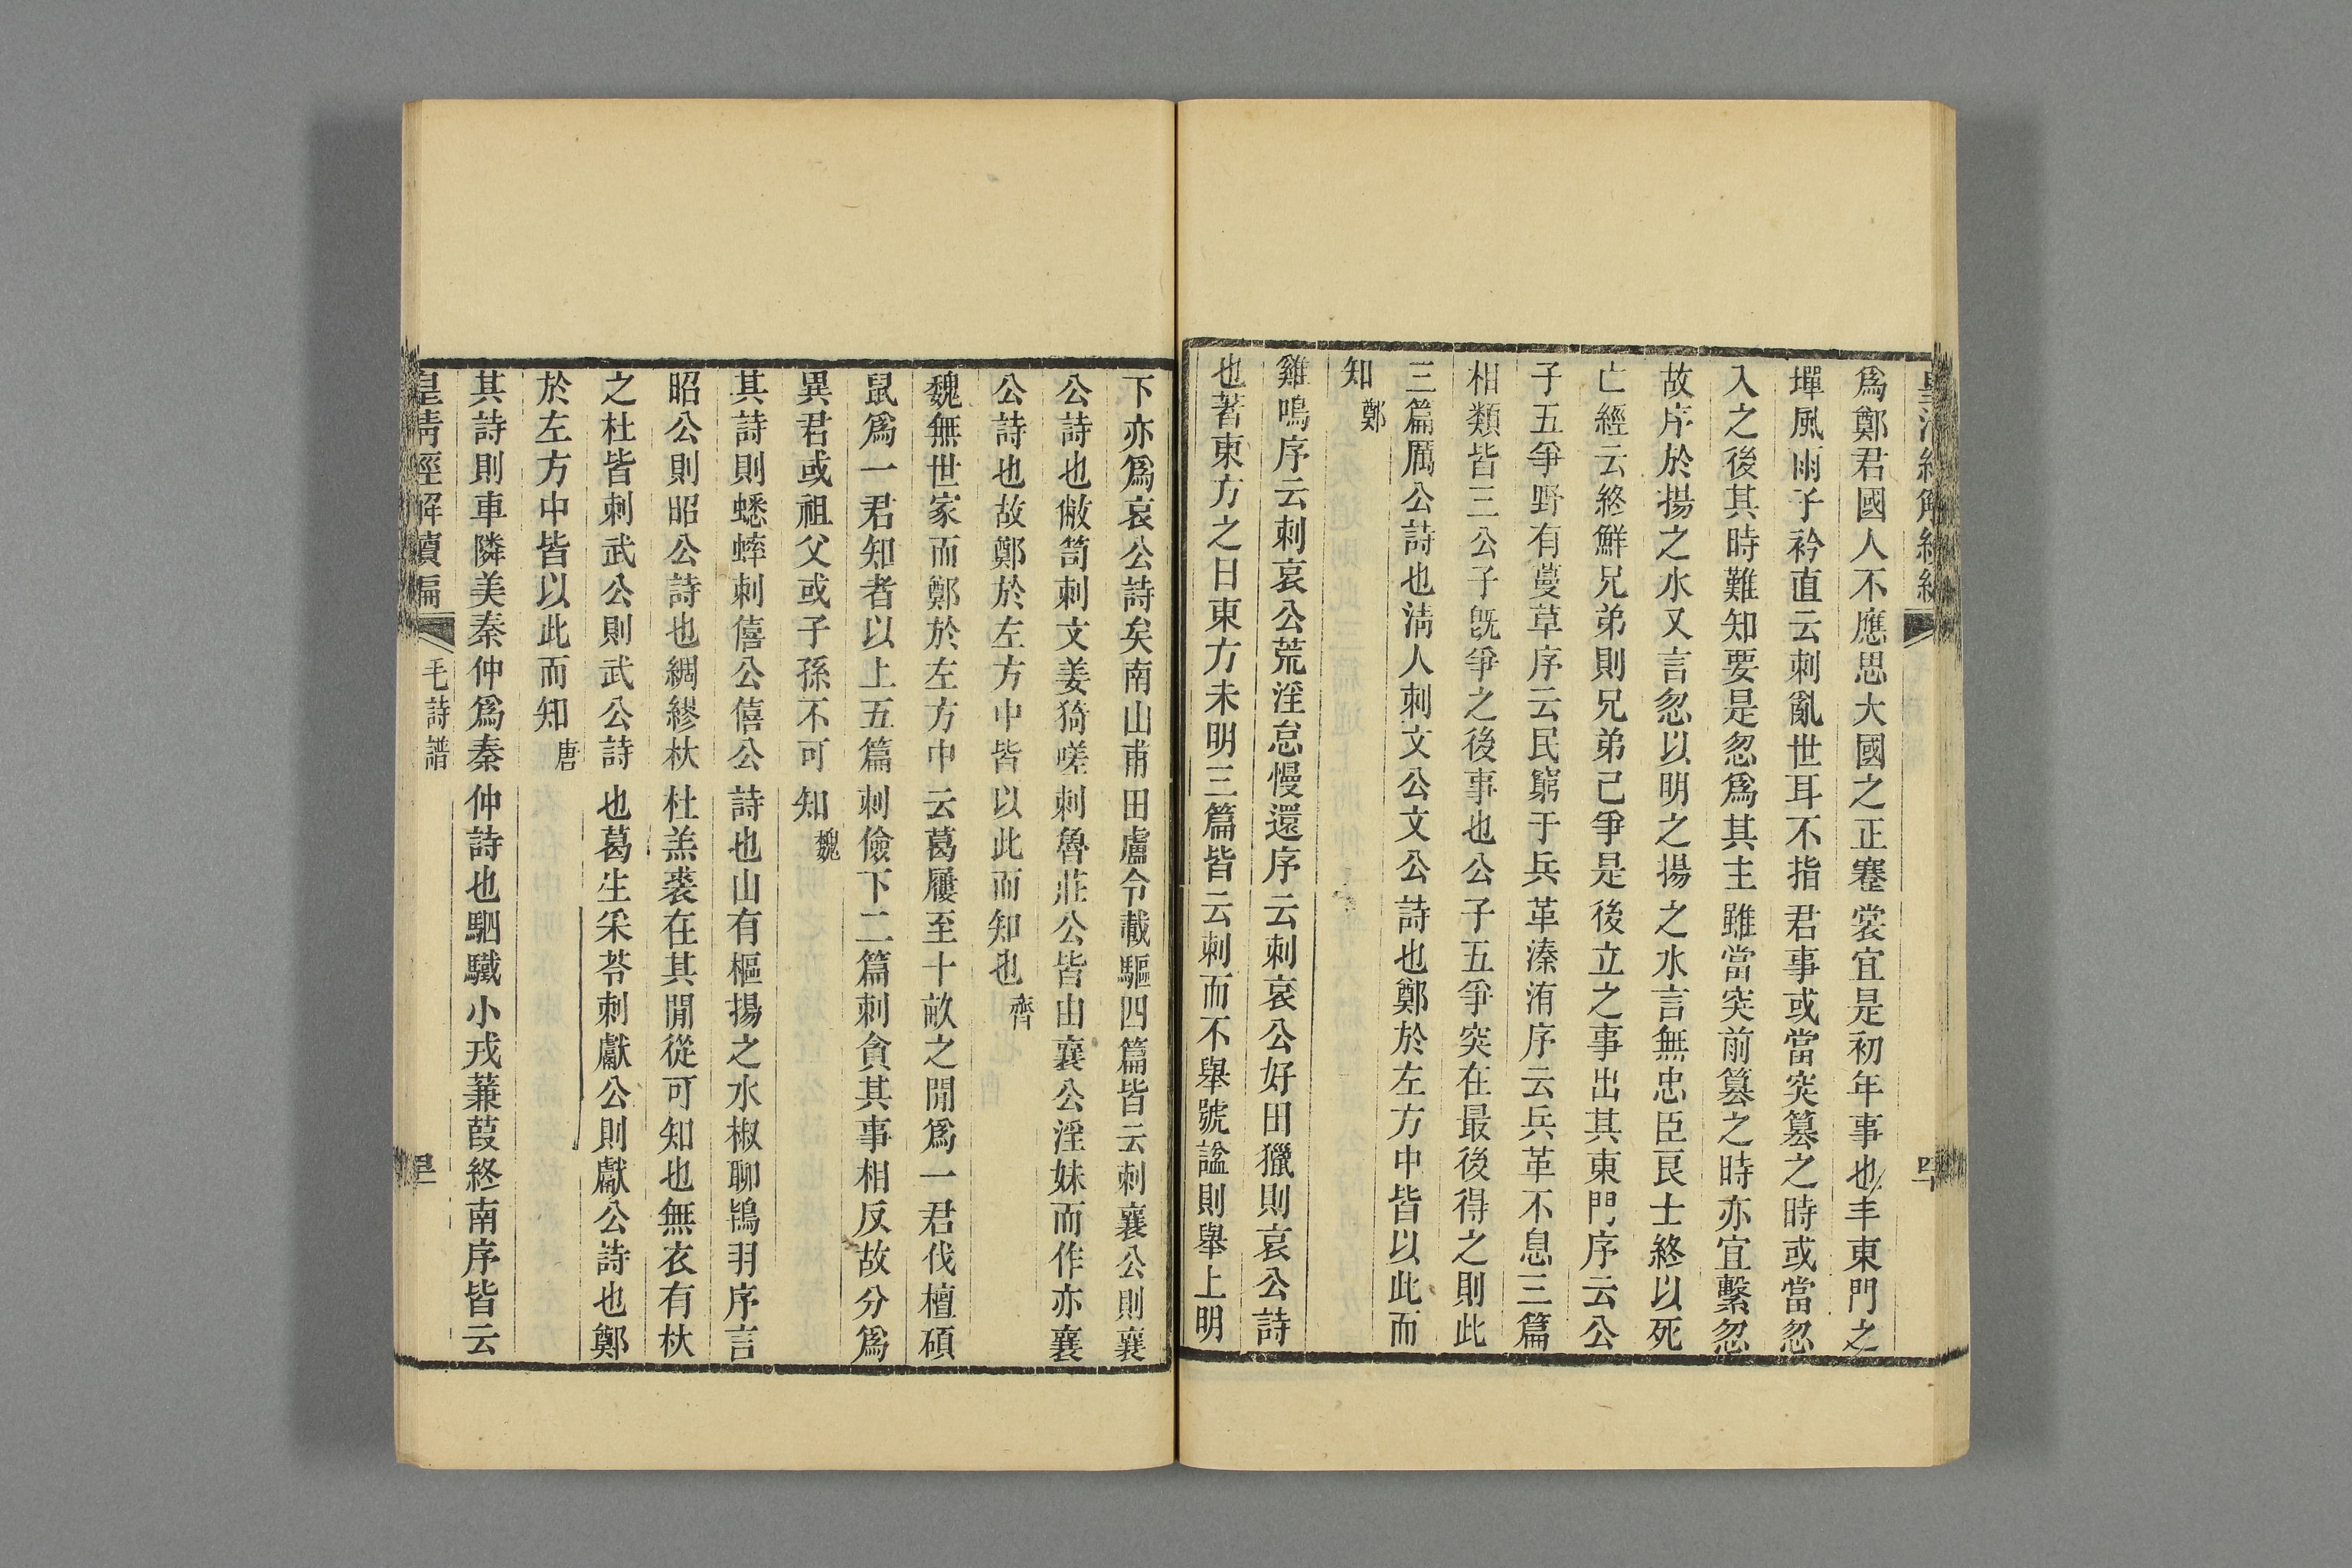 皇清經解續編
爲鄭君國人不應思大國之正蹇裳宜是初年事也丰東門之
墠風雨子衿直云刺亂世耳不指君事或當突簒之時或當忽
入之後其時難知要是忽爲其主雖當突前簒之時亦宜繫忽
故序於揚之水又言忽以明之揚之水言無忠臣良士終以死
亡經云終鮮兄弟則兄弟已爭是後立之事出其東門序云公
子五爭野有蔓草序云民窮于兵革溱洧序云兵革不息三篇
相類皆三公子旣爭之後事也公子五爭突在最後得之則此
三篇厲公詩也淸人刺文公文公詩也鄭於左方中皆以此而
知鄭
雞鳴序云刺哀公荒淫怠慢還序云刺哀公好田獵則哀公詩
也著東方之日東方未明三篇皆云刺而不舉號諡則舉上明
下亦爲哀公詩矣南山甫田盧令載驅四篇皆云刺襄公則襄
公詩也敝笱刺文姜猗嗟刺魯莊公皆由襄公淫妹而作亦襄
公詩也故鄭於左方中皆以此而知也齊
魏無世家而鄭於左方中云葛屨至十畝之閒爲一君伐檀碩
鼠爲一君知者以上五篇刺儉下二篇刺貪其事相反故分爲
異君或祖父或子孫不可知魏
其詩則蟋蟀刺僖公僖公詩也山有樞揚之水椒聊鴇羽序言
昭公則昭公詩也綢繆杕杜羔裘在其閒從可知也無衣有杕
之杜皆刺武公則武公詩也葛生采苓刺獻公則獻公詩也鄭
於左方中皆以此而知唐
其詩則車隣美秦仲爲秦仲詩也駟驖小戎蒹葭終南序皆云
皇清經解續編 毛詩譜